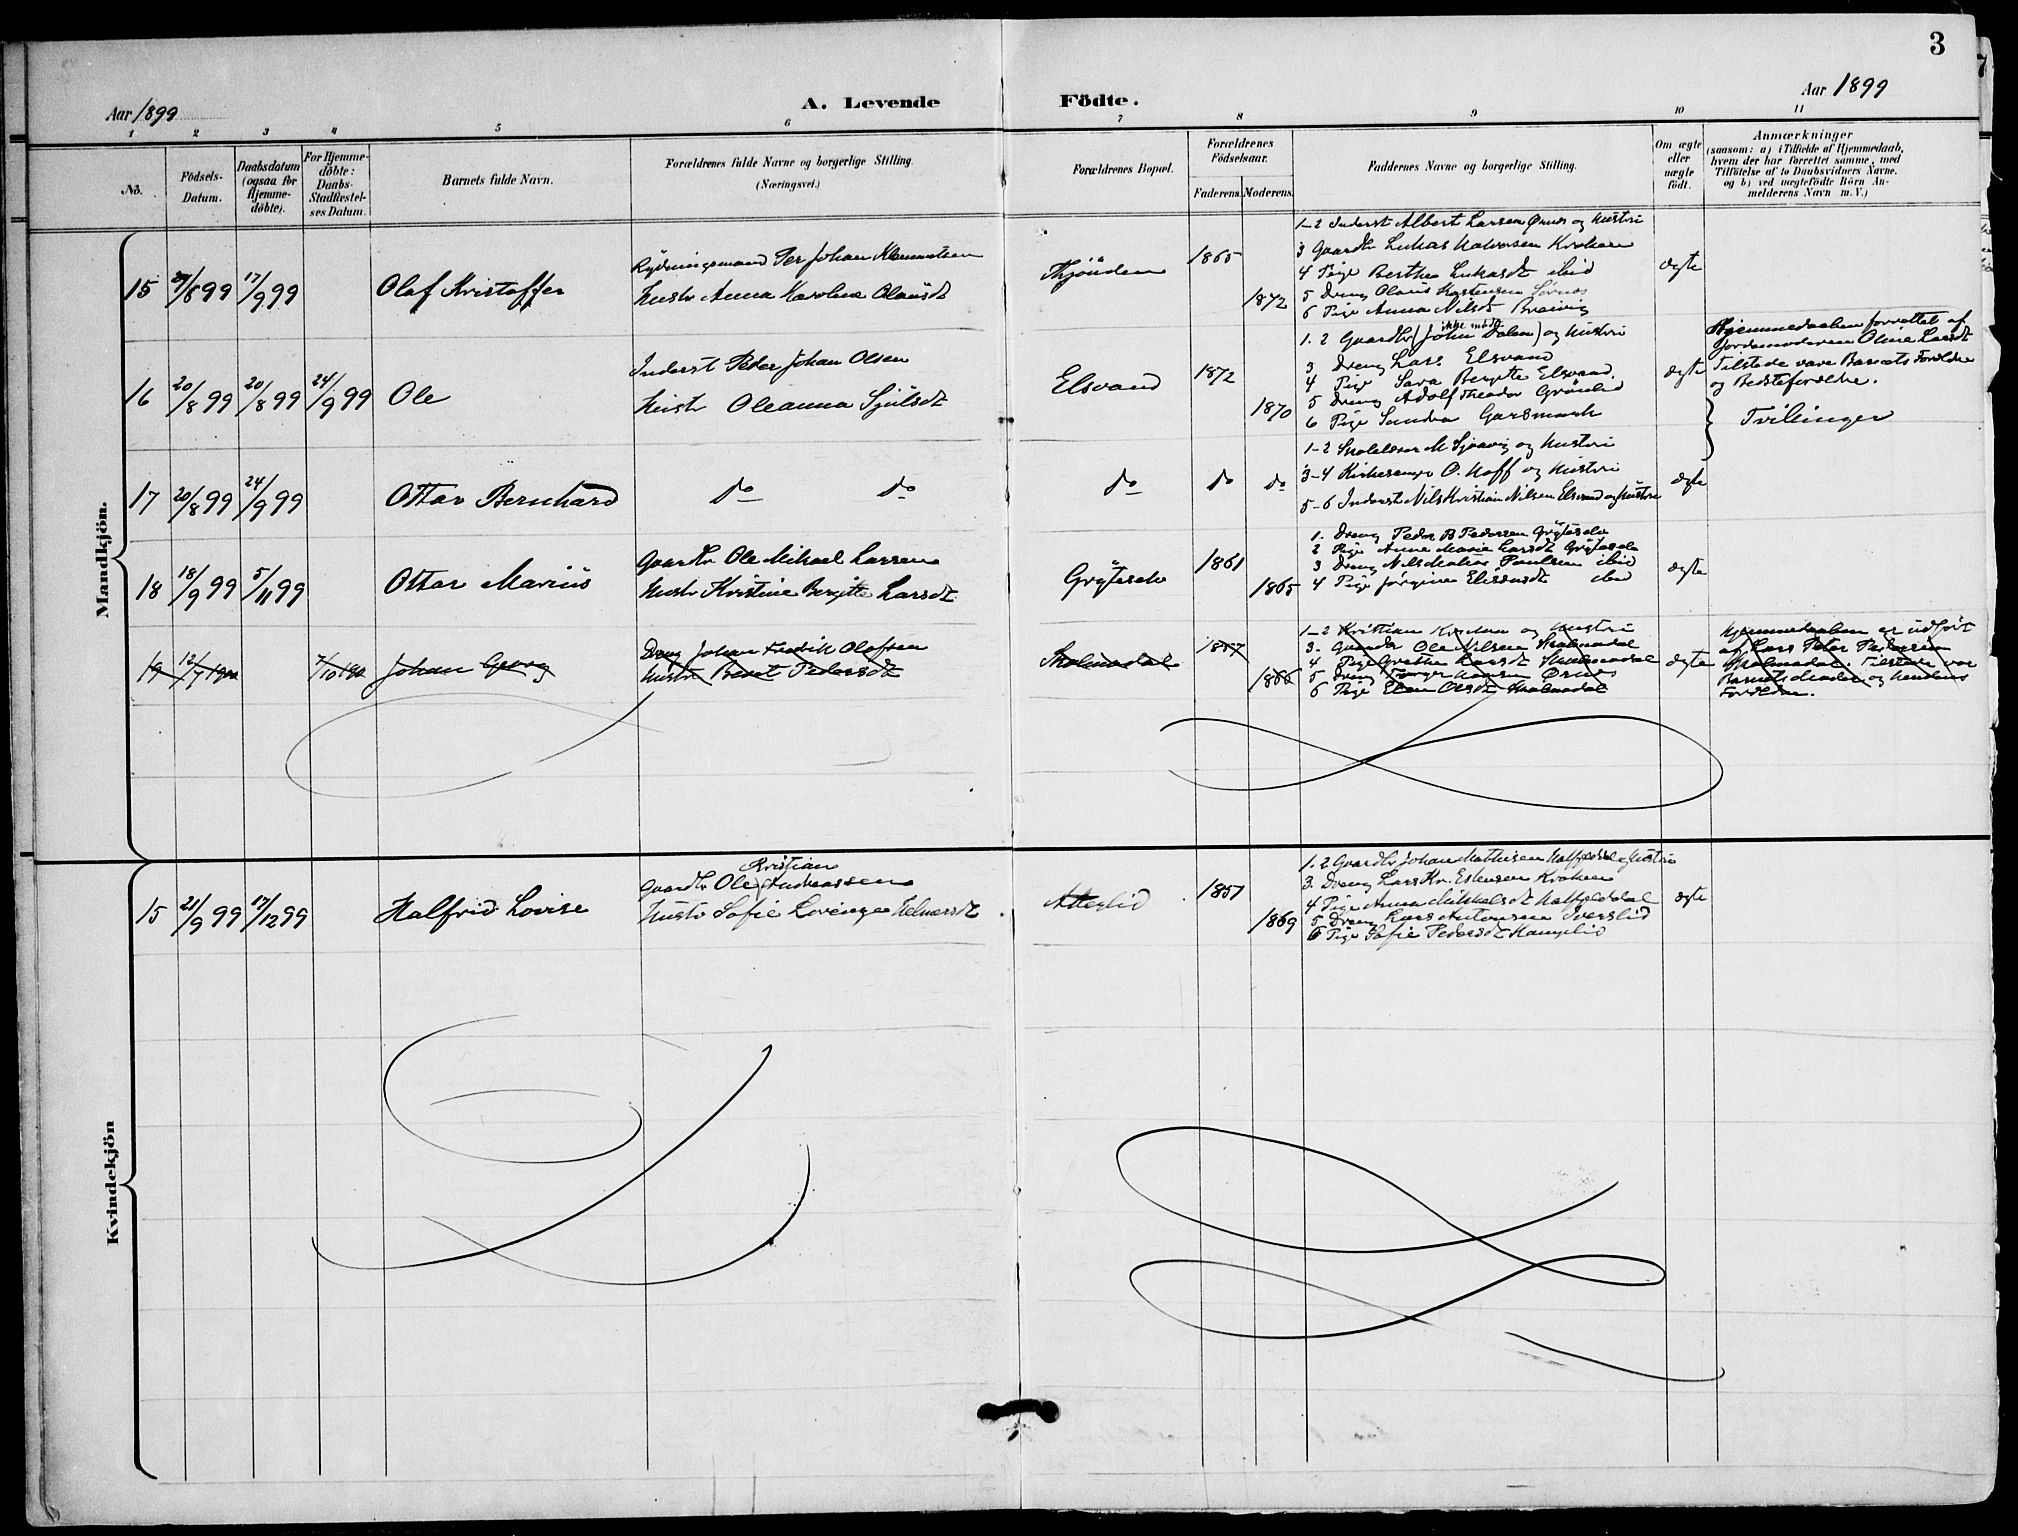 3
Aar 1899
A. Levende Födte.
Aar 1899
1 2 3 4 5 6 7 8 9 10 11
No.
Födsels-Datum.
Daabsdatum (ogsaa for Hjemme-döbte).
For Hjemme-döbte: Daabs-Stadfæstel-ses Datum.
Barnets fulde Navn.
Forældrenes fulde Navne og borgerlige Stilling.
(Næringsvei.)
Forældrenes Bopæl.
Forældrenes Födselsaar.
Faderens. Moderens.
Faddernes Navne og borgerlige Stilling.
Om ægte eller uægte födt.
Anmærkninger
(saasom: a) i Tilfælde af Hjemmedaab, hvem der har forrettet samme, med Tilföielse af to Daabsvidners Navne. og b) ved uægtefödte Börn An-melderens Navn m. V.)
Mandkjön.
15 27/8 99 17/9 99 Olaf Kristoffer
Rydningsmand Per Johan Klemmetsen
Hustr Anna Karolina Olausdt
1865
1872
1-2 Inderst Albert Larsen Ørnes og Hustru
3 Gaardbr Lukas Halvorsen Krokan
4 Pige Berthea Lukasdt ibid
5 Dreng Olaus Karstensen
6 Pige Anna Nilsdt Breivig
ægte
16 20/8 99 20/8 99 24/9 99 Ole
Inderst Peder Johan Olsen
Hustr Oleanna Sjulsdt
Elsvand
1872
1870
ikke mødt
1. 2 Gaardbr (John Dalen) og Hustru
3 Dreng Lars Elsvand
4 Pige Sara Bergitte Elsvand
5 Dreng Adolf Theodor Grönlid
6 Pige Sandra Garsmark
ægte
Hjemmedaaben forrettet af
Jordemoderen Oline Larsdt
Tilstede vare Barnets Forældre
og Bedsteforældre.
Tvillinger
17 20/8 99 24/9 99 Ottar Bernhard
do do
do do do
1-2 M Sjvavig og Hustru
3-4 Kirkesanger O. Hoff og Hustru
5-6 Inderst Nils Kristian Nilsen Elsvand og Hustru
ægte
18 18/9 99 5/11 99 Ottar Marius
Gaardbr Ole Mikael Larsen
Hustr Kristine Bergitte Larsdt
1861
1865
1. Dreng Peder B Pedersen
2 Pige Anne Marie Larsdt
3 Dreng Paulsen ibid
4 Pige Jørgine ibid
ægte
19 12/7 1900 7/10 1900 Johan Georg
Dreng Johan Fredrik Olofsen
Hustr Beret Pedersdt
Skalmodal
1857
1866
1-2 Kristian og Hustru
3. Gaardbr Ole Nilsen Skalmodal
4 Pige Grethe Larsdt Skalmodal
5 Dreng Hansen Ørnes
6 Pige Elen Olsdt Skalmodal
ægte
Hjemmedaaben er udfört
af Lars Peter Pedersen
Skalmodal. Tilstede var
Barnets Moder og hendes
Forældre.
Kvindekjön
15 21/9 99 17/12 99 Halfrid Lovise
Kristian
Gaardbr Ole Andreassen
Hustr Sofie Lovinge Helmersdt
Atterlid
1857
1869
1. 2 Gaardbr Johan Mathisen Hatfjelddal og Hustru
3. Dreng Lars Kr. Estensen Krokan
4 Pige Anna Mikkelsdt Hatfjelddal
5 Dreng Lars Antonsen
6 Pige Sofie Pedersdt
ægte